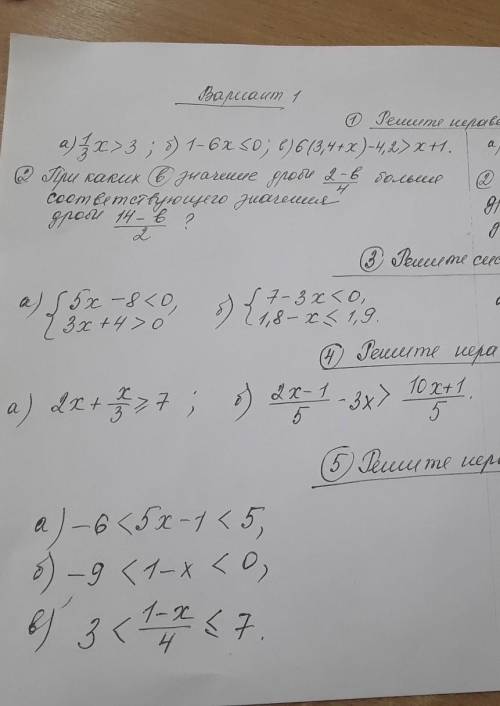 Вариант 1
① Решите нерав
а) 1/3 x > 3 ; б) 1 - 6x ≤ 0 ; в) 6(3,4+x) - 4,2 > x + 1.
② При каких в значение дроби (2-в)/4 больше
соответствующего значения
дроби (14-в)/2 ?
③ Решите сис
а) { 5x - 8 < 0, 3x + 4 > 0 б) { 7 - 3x < 0, 1,8 - x ≤ 1,9.
④ Решите нера
а) 2x + x/3 ≥ 7 ; б) (2x-1)/5 - 3x > (10x+1)/5.
⑤ Решите нера
а) -6 < 5x - 1 < 5,
б) -9 < 1 - x < 0,
в) 3 < (1-x)/4 ≤ 7.